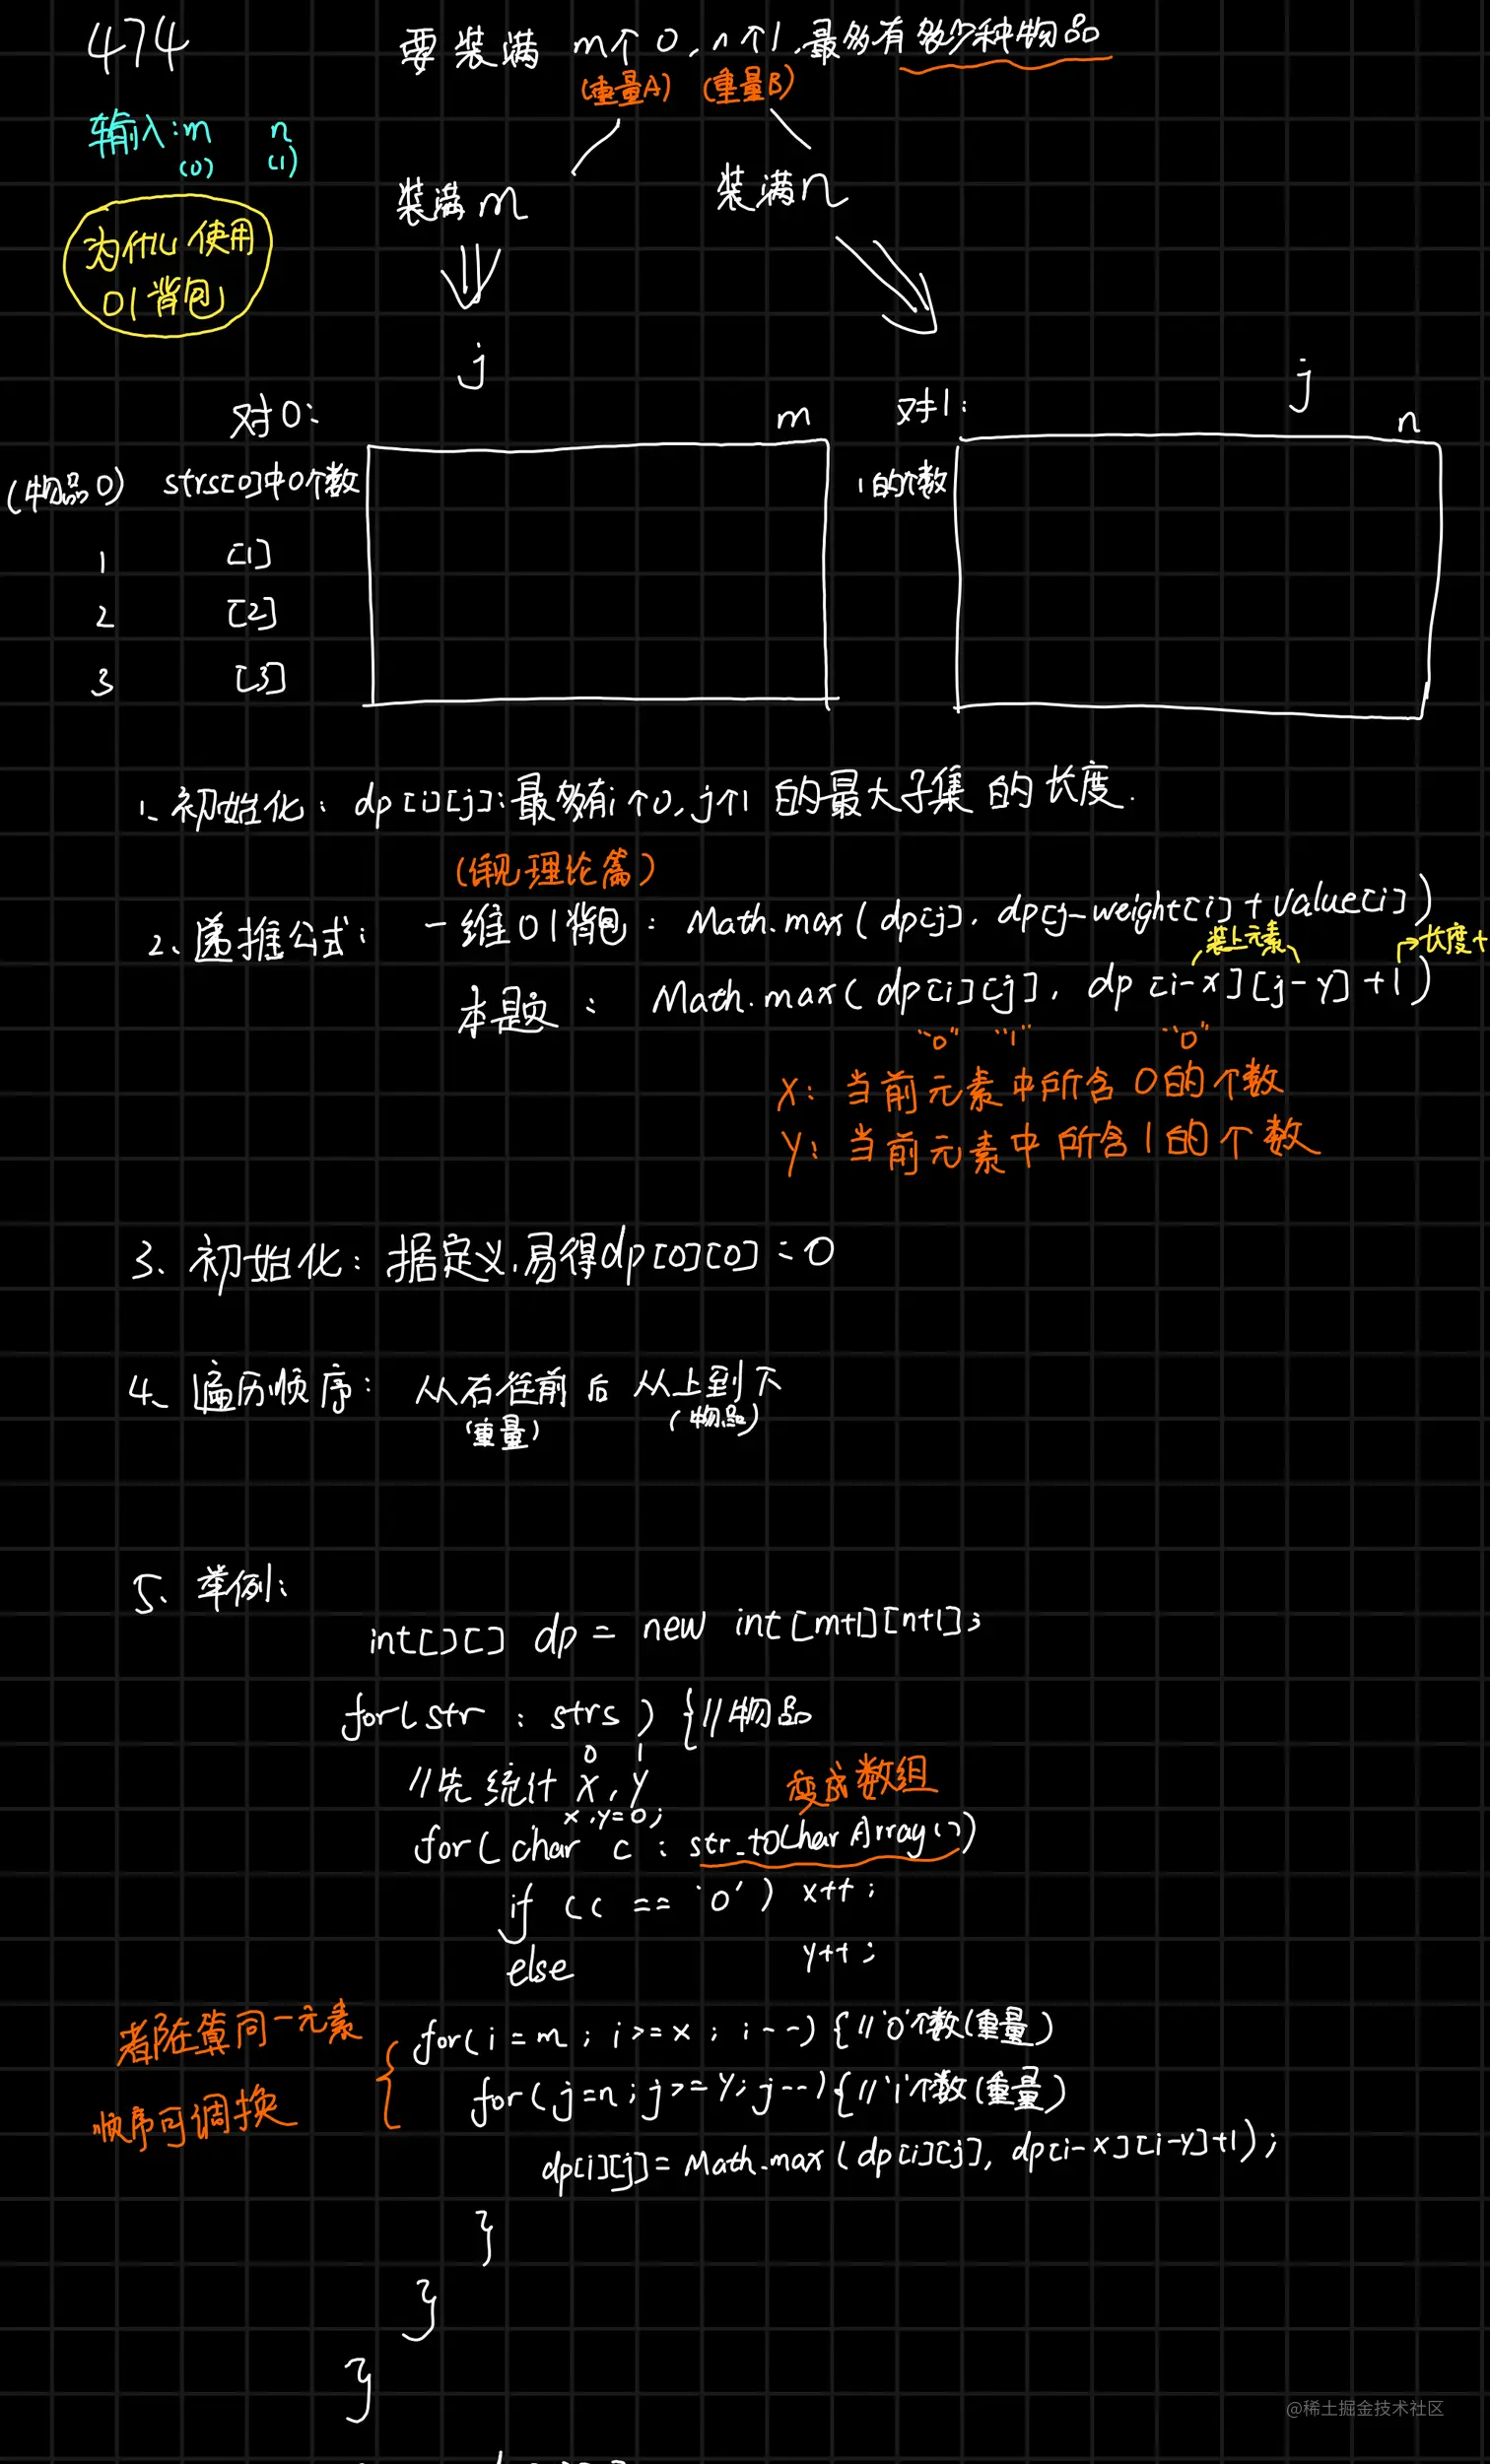 474
要装满 m个0,n个1,最多有多少种物品
(重量A) (重量B)
输入:m n
(0) (1)
装满m 装满n
为什么使用
01背包
j j
对0: m 对1: n
(物品0) strs[0]中0个数 1的个数
1 [1]
2 [2]
3 [3]
1、初始化: dp[i][j]:最多有i个0,j个1的最大子集的长度.
(详见理论篇)
2、递推公式: 一维01背包: Math.max(dp[j], dp[j-weight[i]+value[i])
装上元素 →长度+
本题: Math.max(dp[i][j], dp[i-x][j-y]+1)
"0" "1" "0"
X: 当前元素中所含0的个数
Y: 当前元素中所含1的个数
3、初始化: 据定义,易得dp[0][0]=0
4、遍历顺序: 从右往前后 从上到下
(重量) (物品)
5、举例:
int[][] dp = new int[m+1][n+1];
for(str : strs) {//物品
0 1
//先统计 X,Y 变成数组
x,y=0;
for(char c : str.toCharArray())
if (c == '0') x++;
else y++;
都在算同一元素
for(i=m; i>=x; i--){//'0'个数(重量)
顺序可调换
for(j=n; j>=y; j--){//'1'个数(重量)
dp[i][j]=Math.max(dp[i][j], dp[i-x][i-y]+1);
}
}
}
@稀土掘金技术社区